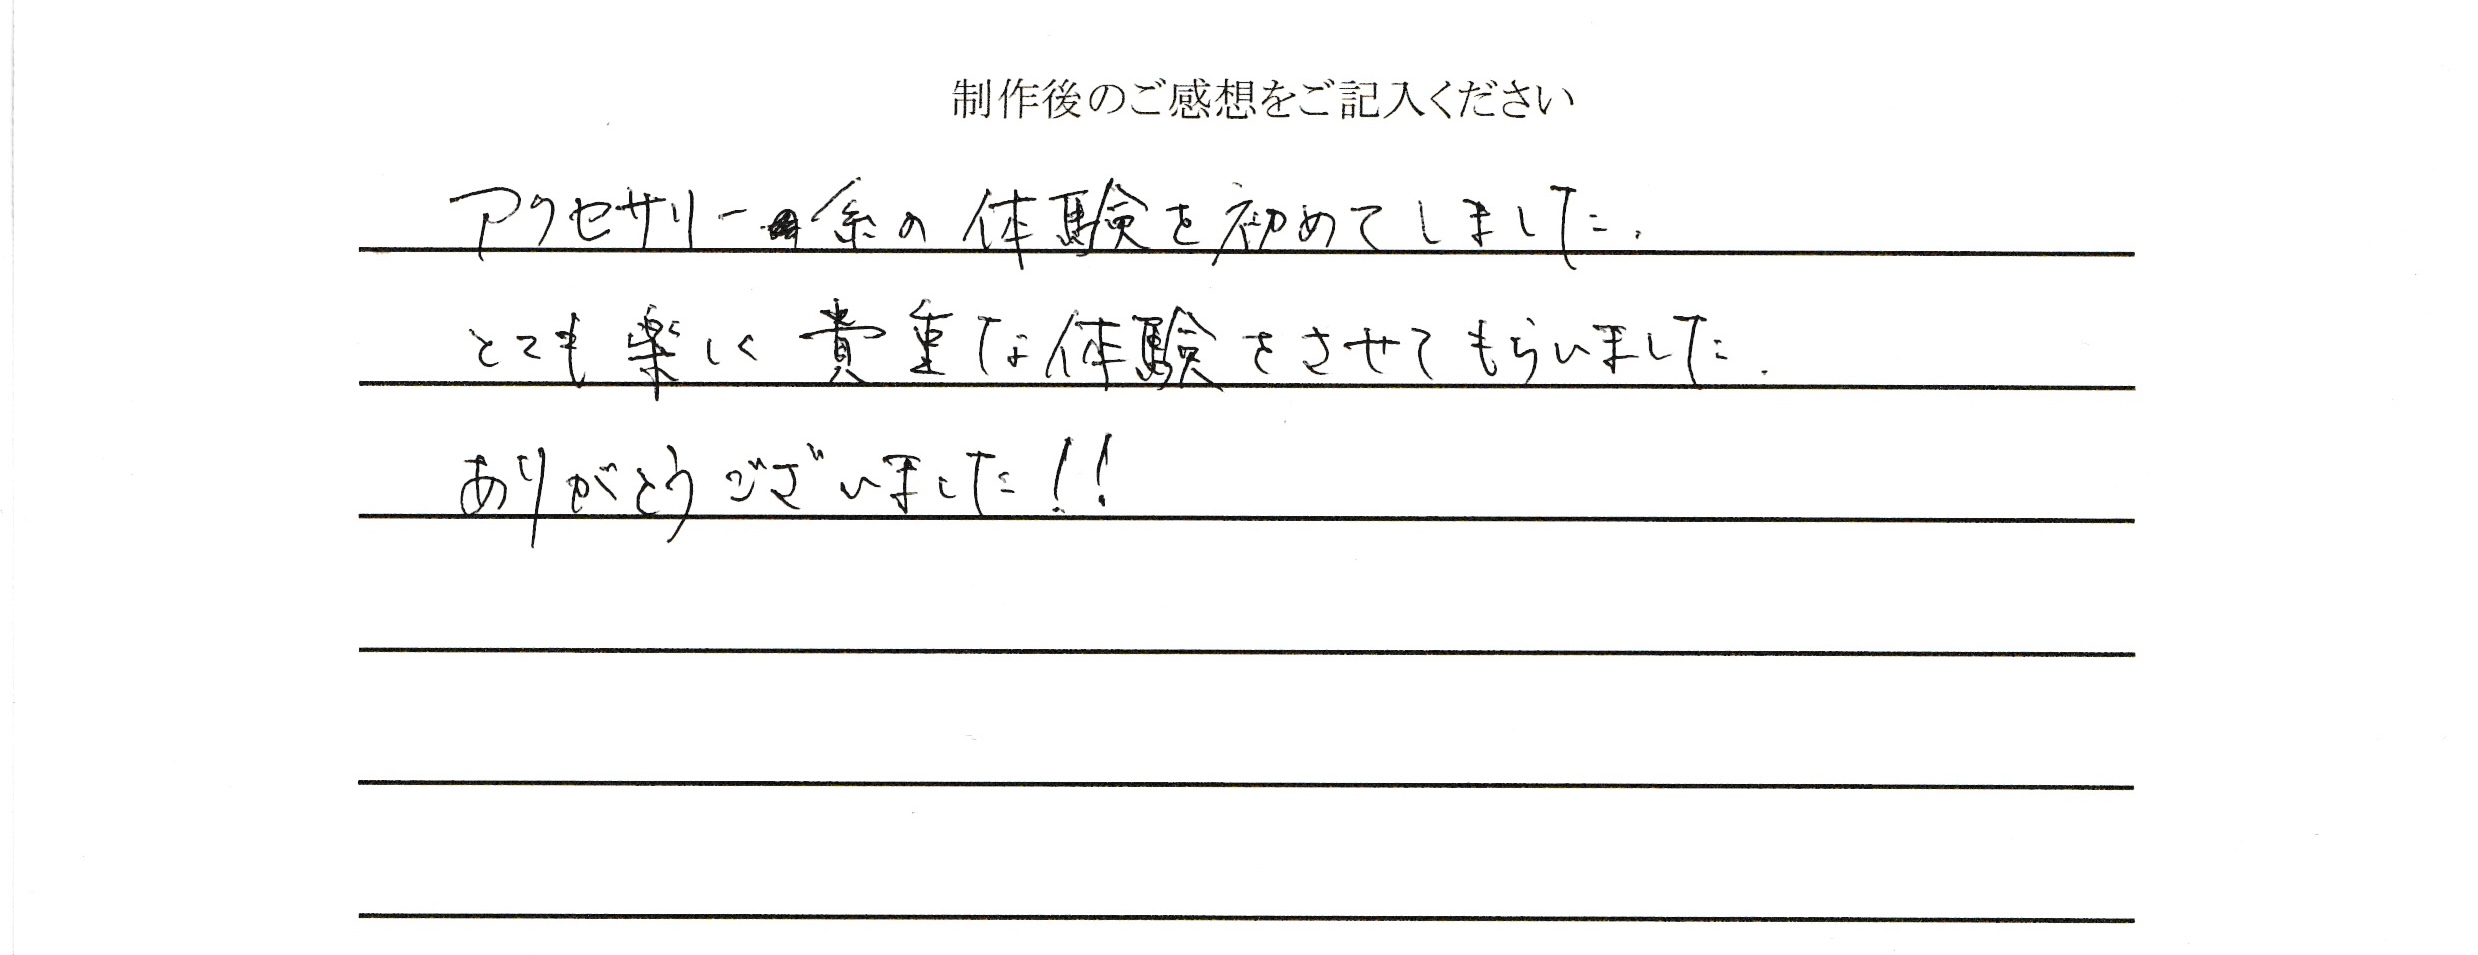 制作後のご感想をご記入ください
アクセサリー系の体験を初めてしました.
とても楽しく貴重な体験をさせてもらいました.
ありがとうございました!!